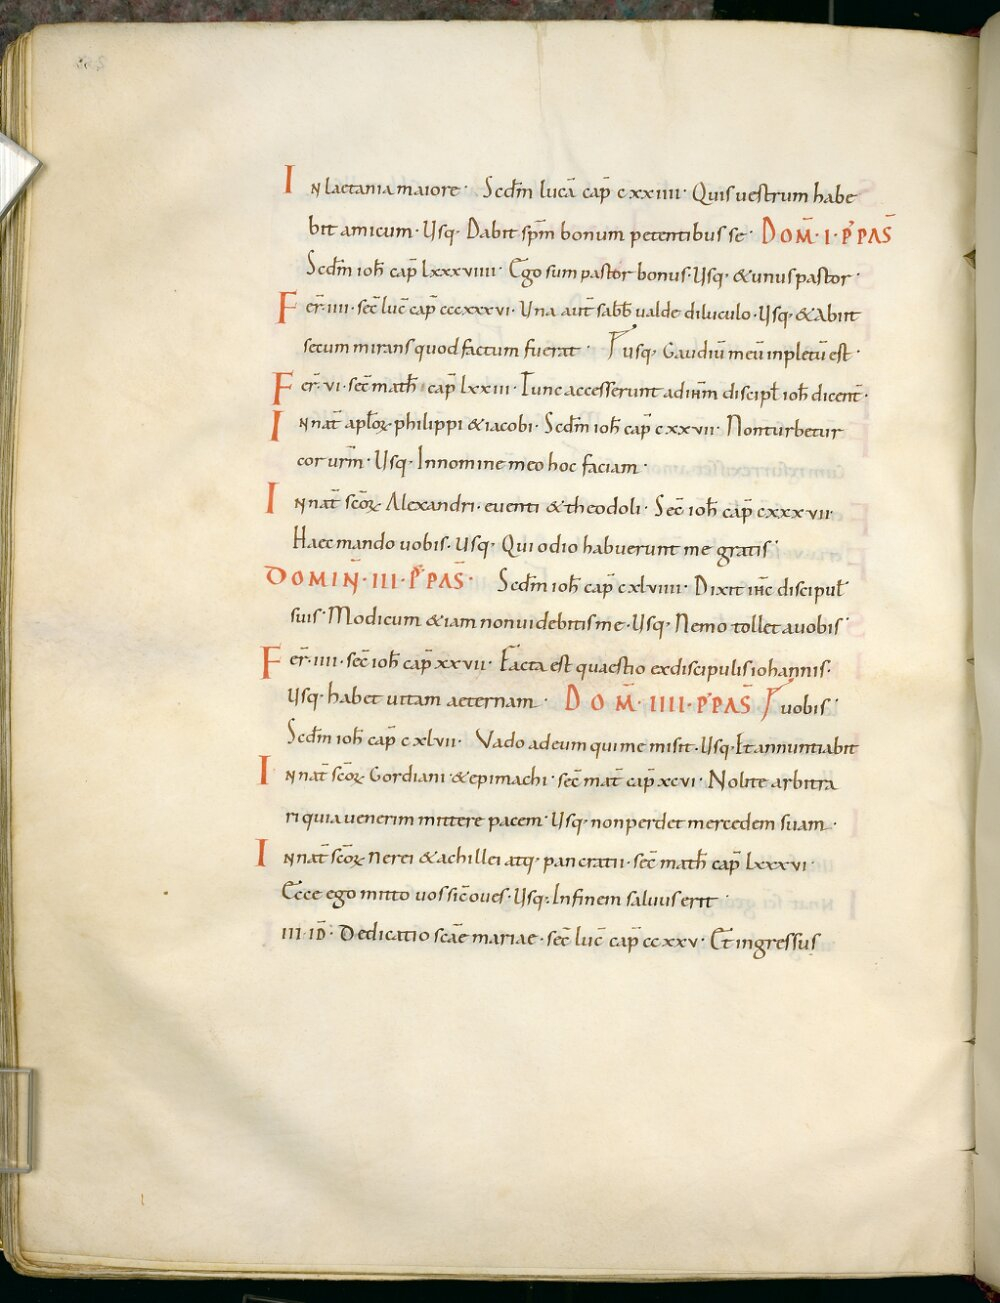 In laetania maiore· Scdm̄ lucā cap̄ cxxiiii· Quis uestrum habe
bit amicum· Usq· Dabit sp̄m bonum petentibus se· DOM̄·I·P̄PAS̄
Scdm̄ ioh̄ cap̄ lxxxviiii· Ego sum pastor bonus· Usq· & unus pastor·
Fer̄·iiii·sec̄ luc̄ cap̄ cccxxxvi· Una aut̄ sabb̄ ualde diluculo· Usq· & Abiit
secum mirans quod factum fuerat· usq· Gaudiū meū inpletū est·
Fer̄·vi·sec̄ math̄ cap̄ lxxiii· Tunc accesserunt ad ihm̄ discipł ioh̄ dicent̄·
In nat̄ apłoꝝ philippi & iacobi· Scdm̄ ioh̄ cap̄ cxxvii· Non turbetur
cor urm̄· Usq· In nomine meo hoc faciam·
In nat̄ sc̄oꝝ Alexandri· euenti & theodoli· Sec̄ ioh̄ cap̄ cxxxvii·
Haec mando uobis· Usq· Qui odio habuerunt me gratis·
DOMIN̄·III·P̄PAS̄· Scdm̄ ioh̄ cap̄ cxlviiii· Dixit ihc̄ discipuł
suis· Modicum & iam non uidebitis me· Usq· Nemo tollet a uobis·
Fer̄·iiii·sec̄ ioh̄ cap̄ xxvii· Facta est quaestio ex discipulis iohannis·
Usq· habet uitam aeternam· DOM̄·IIII·P̄PAS̄ uobis·
Scdm̄ ioh̄ cap̄ cxlvii· Vado ad eum qui me misit· Usq· Et annuntiabit
In nat̄ sc̄oꝝ Gordiani & epimachi· sec̄ mat̄ cap̄ xcvi· Nolite arbitra
ri quia uenerim mittere pacem· Usq· non perdet mercedem suam·
In nat̄ sc̄oꝝ nerei & achillei atq· pancratii· sec̄ math̄ cap̄ lxxxvi·
Ecce ego mitto uos sic̄ oues· Usq· In finem saluus erit·
III·ID̄· Dedicatio scāe mariae· sec̄ luc̄ cap̄ ccxxv· Et ingressus